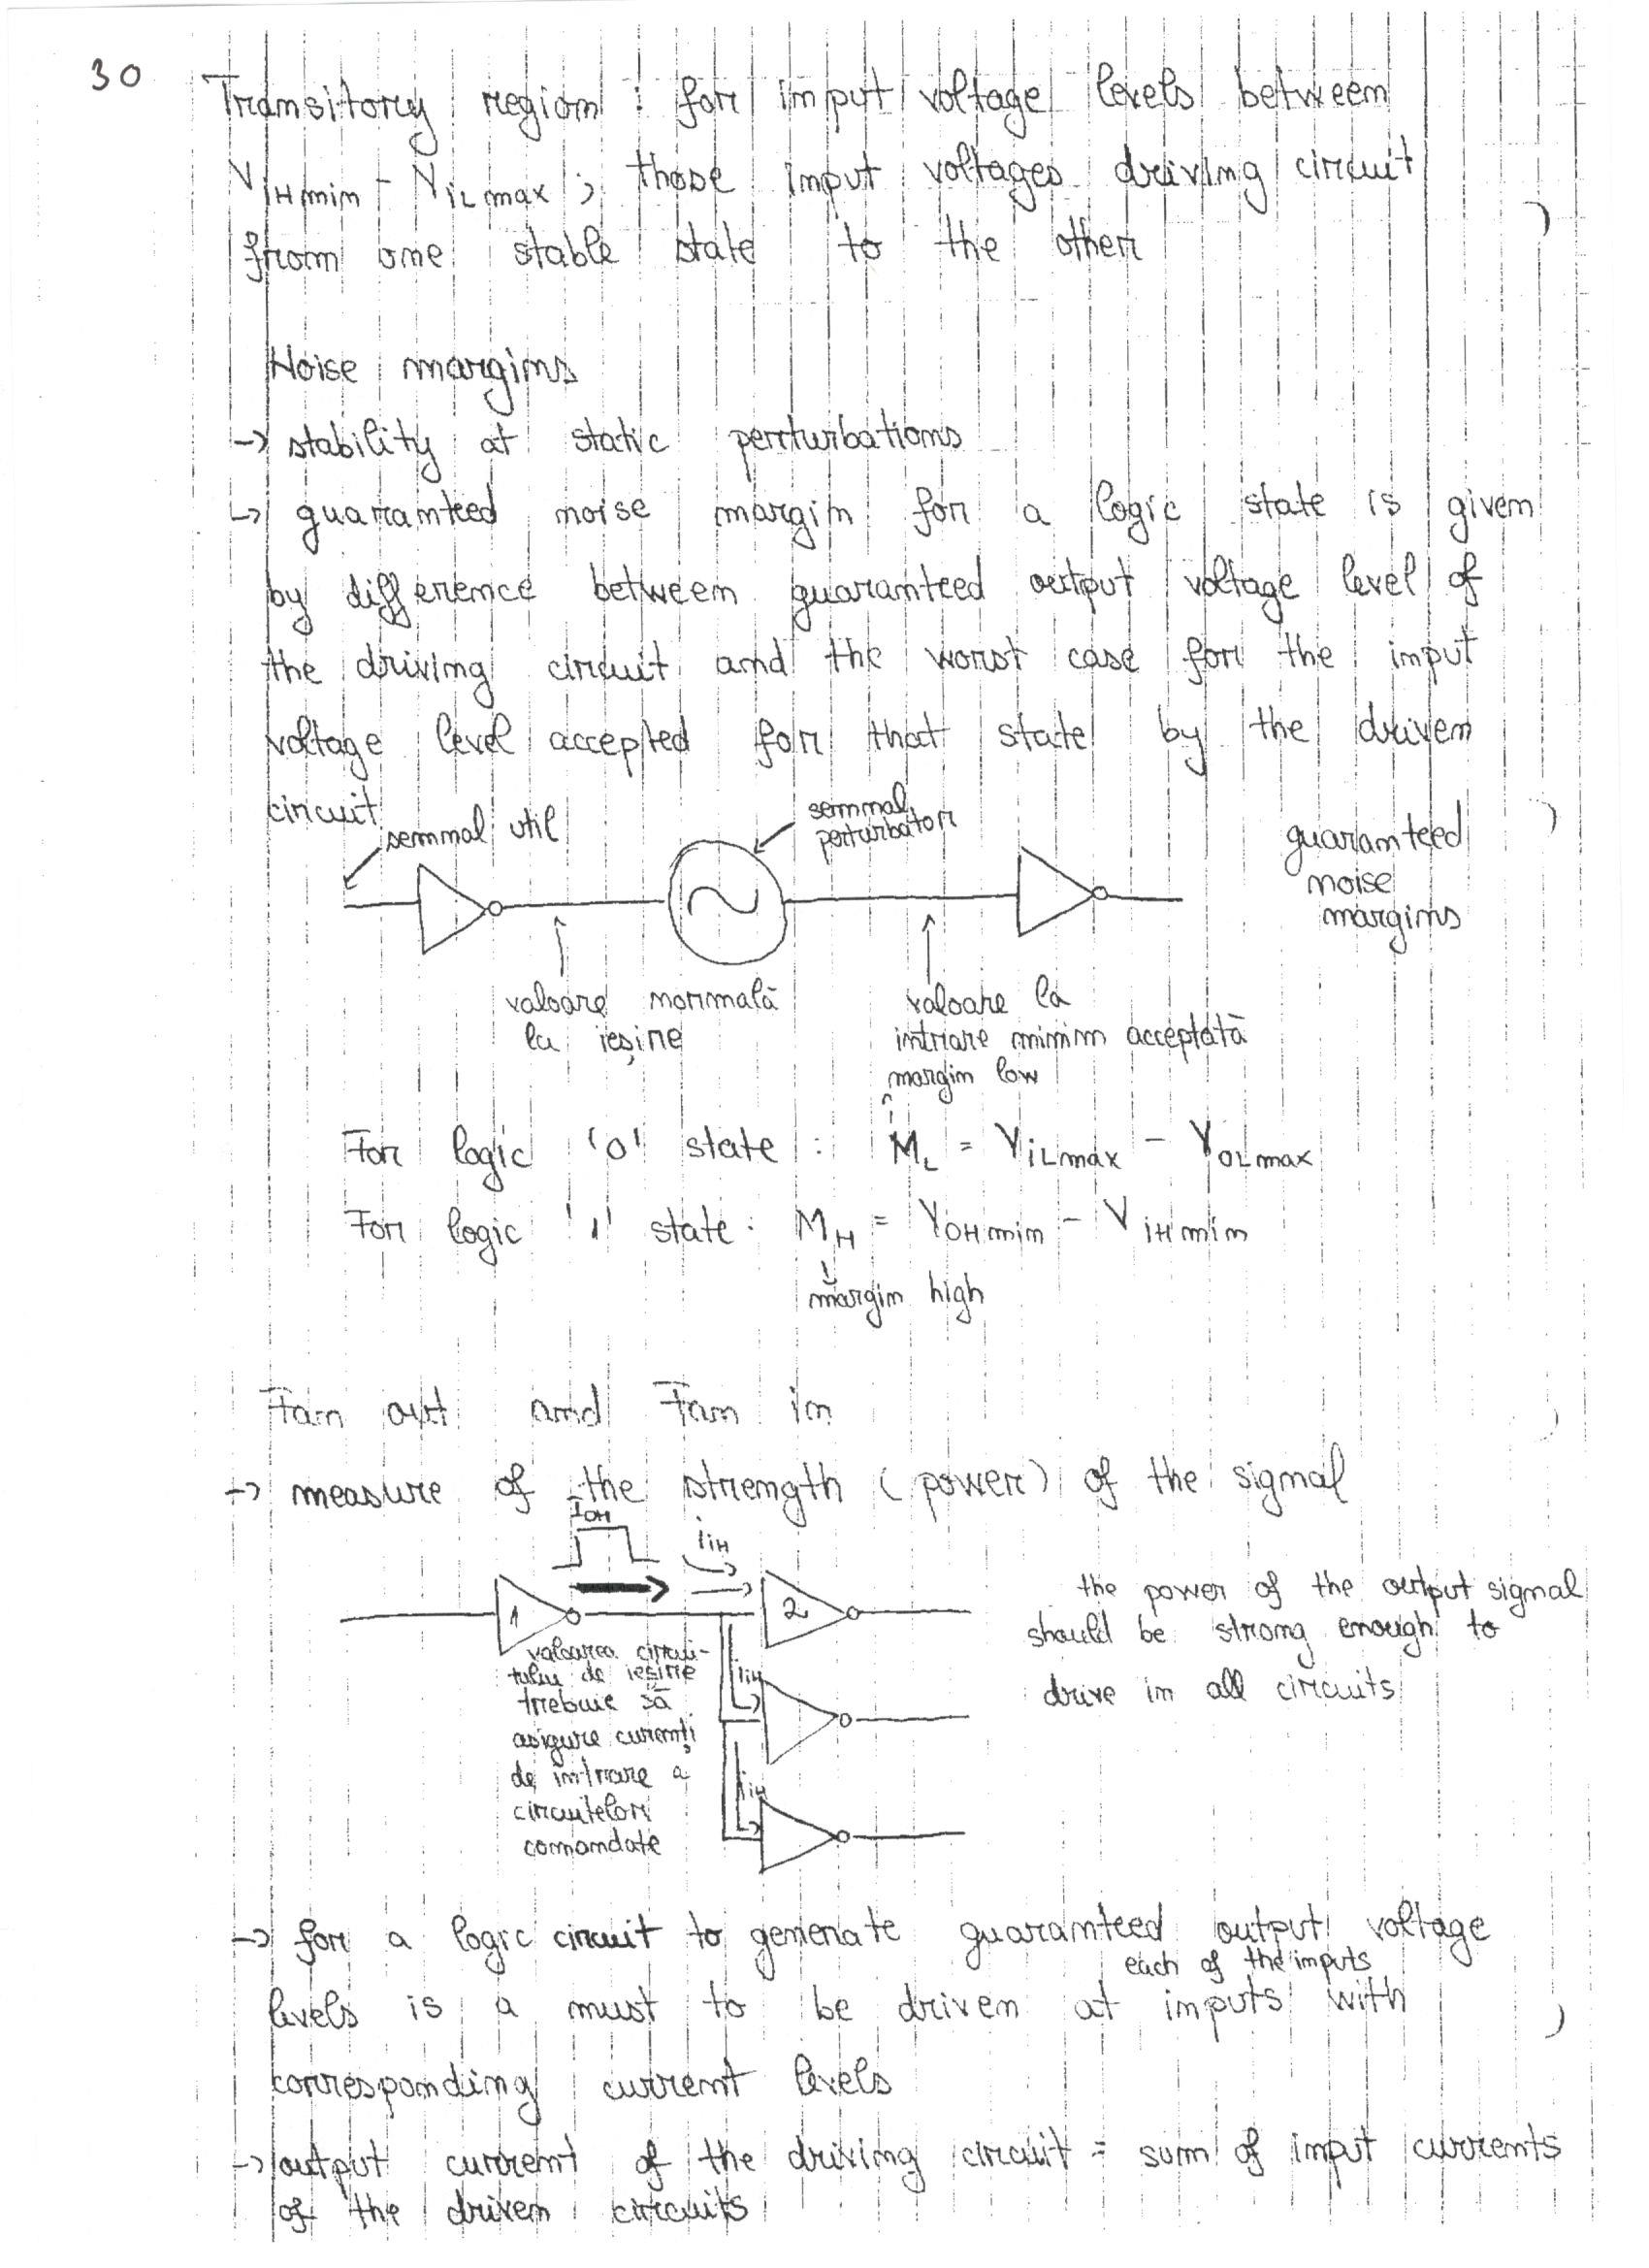 30
Transitory region : for input voltage levels between
ViHmin - ViLmax ; those input voltages driving circuit
from one stable state to the other
Noise margins
-> stability at static perturbations
↳ guaranteed noise margin for a logic state is given
by difference between guaranteed output voltage level of
the driving circuit and the worst case for the input
voltage level accepted for that state by the driven
circuit
semnal util
semnal
perturbator
guaranteed
noise
margins
valoare normală
la ieșire
valoare la
intrare minim acceptată
margin low
For logic '0' state : ML = ViLmax - VOLmax
For logic '1' state : MH = VOHmin - ViHmin
margin high
Fan out and Fan in
-> measure of the strength (power) of the signal
IOH
IiH
1
2
the power of the output signal
should be strong enough to
drive in all circuits
valoarea circui-
tului de ieșire
trebuie să
asigure curenți
de intrare a
circuitelor
comandate
IiH
IiH
-> for a logic circuit to generate guaranteed output voltage
each of the inputs
levels is a must to be driven at inputs with
corresponding current levels
-> output current of the driving circuit = sum of input currents
of the driven circuits